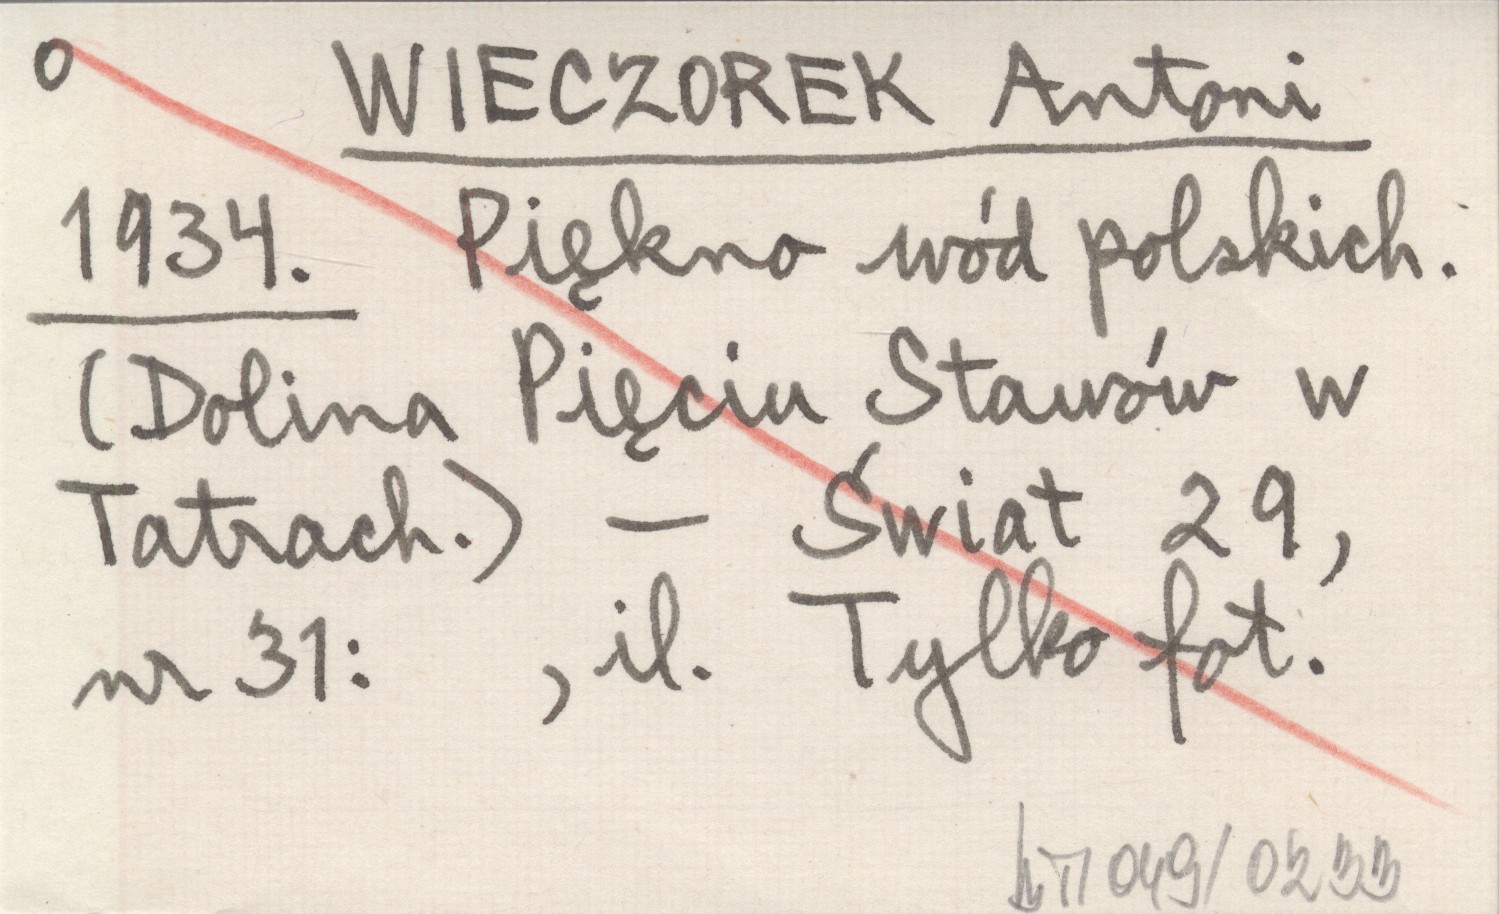 o WIECZOREK Antoni
1934. Piękno wód polskich.
(Dolina Pięciu Stawów w
Tatrach.) — Świat 29,
nr 31: , il. Tylko fot.
049/0233